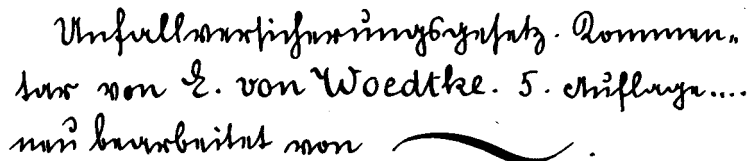 Unfallversicherungsgesetz. Kommen-
tar von E. von Woedtke. 5. Auflage....
neu bearbeitet von